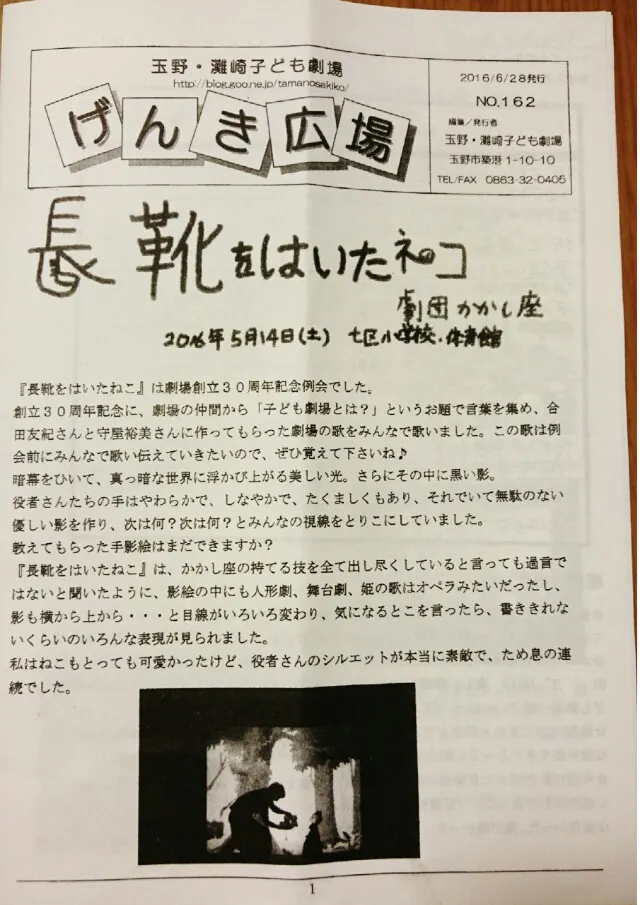 玉野・灘崎子ども劇場
http://blog.goo.ne.jp/tamanosakiko/
げんき広場
2016/6/28発行
NO.162
編集/発行者
玉野・灘崎子ども劇場
玉野市築港1-10-10
TEL/FAX 0863-32-0405
長靴をはいたネコ
劇団かかし座
2016年5月14日(土) 七区小学校・体育館
『長靴をはいたねこ』は劇場創立30周年記念例会でした。
創立30周年記念に、劇場の仲間から「子ども劇場とは?」というお題で言葉を集め、合
田友紀さんと守屋裕美さんに作ってもらった劇場の歌をみんなで歌いました。この歌は例
会前にみんなで歌い伝えていきたいので、ぜひ覚えて下さいね♪
暗幕をひいて、真っ暗な世界に浮かび上がる美しい光。さらにその中に黒い影。
役者さんたちの手はやわらかで、しなやかで、たくましくもあり、それでいて無駄のない
優しい影を作り、次は何?次は何?とみんなの視線をとりこにしていました。
教えてもらった手影絵はまだできますか?
『長靴をはいたねこ』は、かかし座の持てる技を全て出し尽くしていると言っても過言で
はないと聞いたように、影絵の中にも人形劇、舞台劇、姫の歌はオペラみたいだったし、
影も横から上から・・・と目線がいろいろ変わり、気になるとこを言ったら、書ききれな
いくらいのいろんな表現が見られました。
私はねこもとっても可愛かったけど、役者さんのシルエットが本当に素敵で、ため息の連
続でした。
1